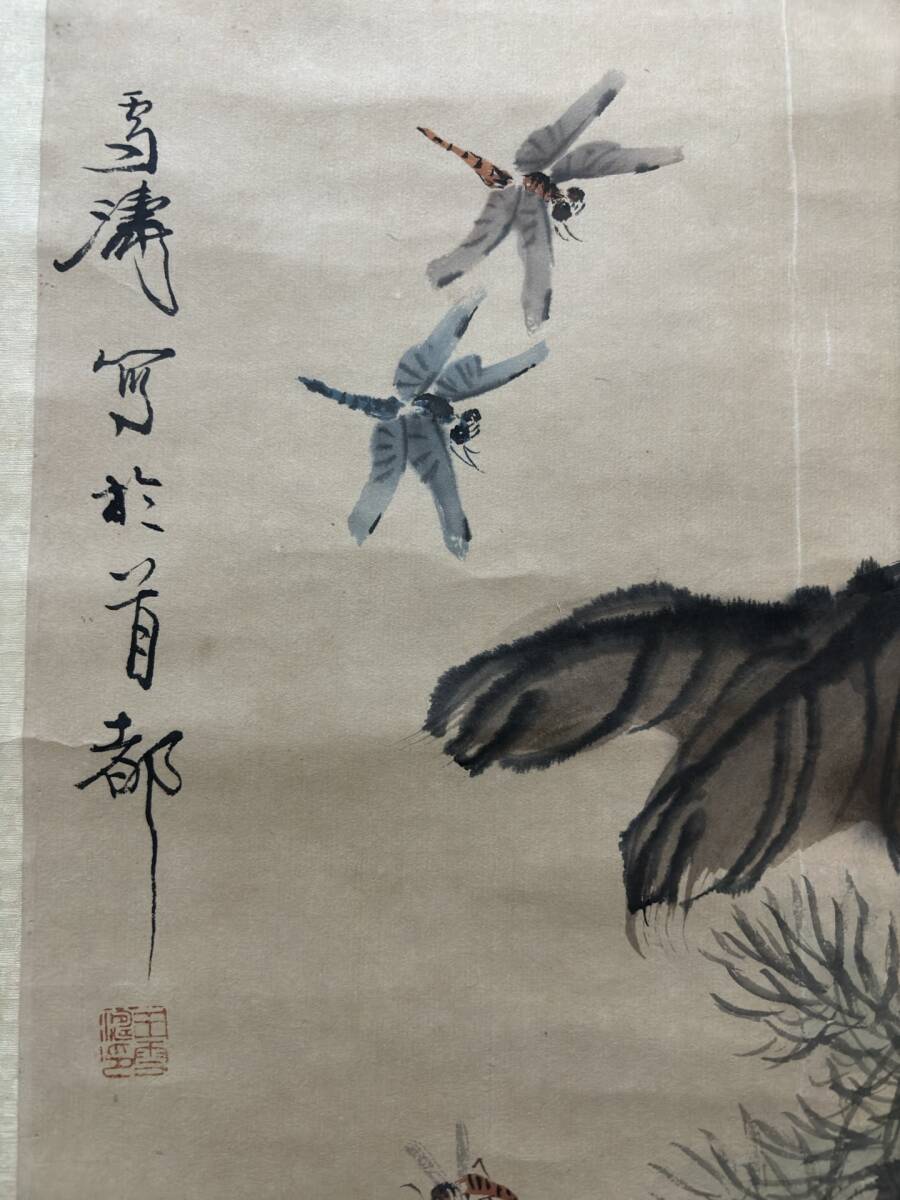 雪濤寫於首都
王雪濤印